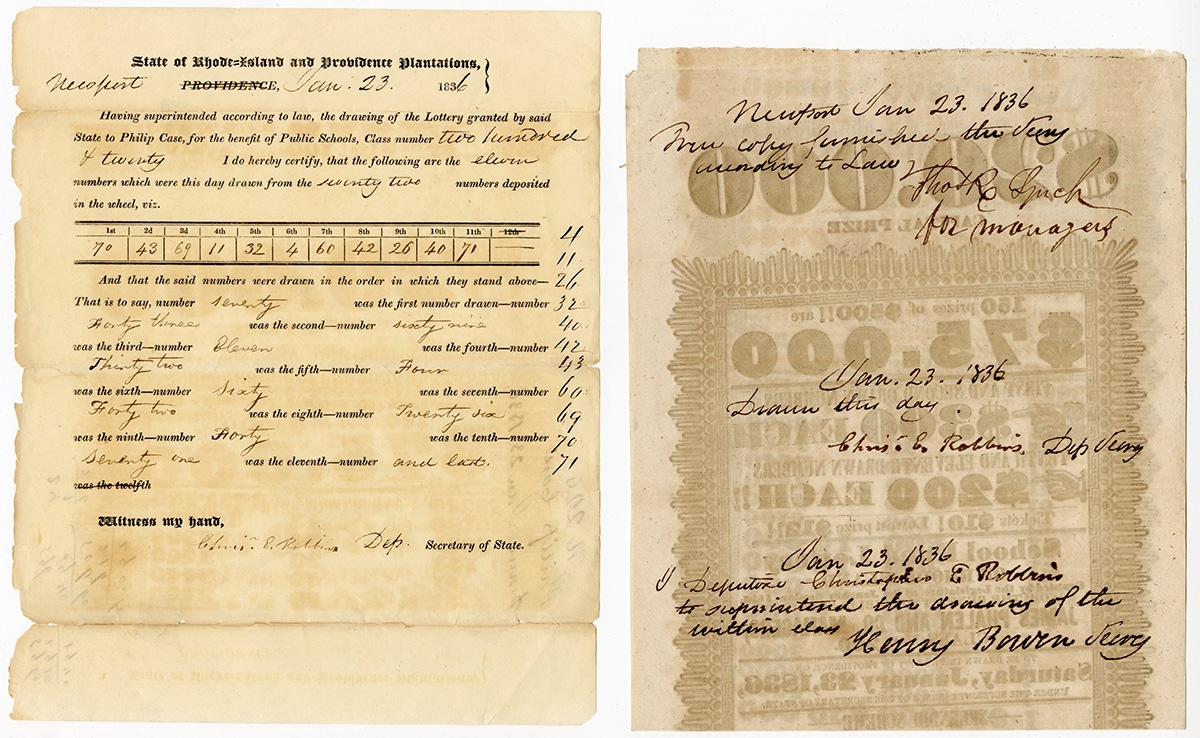 State of Rhode=Island and Providence Plantations,
Newport PROVIDENCE, Jan. 23. 1836
Having superintended according to law, the drawing of the Lottery granted by said
State to Philip Case, for the benefit of Public Schools, Class number two hundred
& twenty I do hereby certify, that the following are the eleven
numbers which were this day drawn from the seventy two numbers deposited
in the wheel, viz.
1st 2d 3d 4th 5th 6th 7th 8th 9th 10th 11th 12th
70 43 69 11 32 4 60 42 26 40 71
And that the said numbers were drawn in the order in which they stand above—
That is to say, number seventy was the first number drawn—number
Forty three was the second—number sixty nine
was the third—number Eleven was the fourth—number
Thirty two was the fifth—number Four
was the sixth—number Sixty was the seventh—number
Forty two was the eighth—number Twenty six
was the ninth—number Forty was the tenth—number
Seventy one was the eleventh—number and last.
was the twelfth
4
11
26
32
40
42
43
60
69
70
71
Witness my hand,
Chrisr. E. Robbins Dep. Secretary of State.
Newport Jan 23. 1836
True copy furnished the Secry
according to Law
Thos R Lynch
for managers
PRIZE
100 prizes of $500!! are
$75,000
Jan. 23. 1836
Drawn this day.
Chrisr. E. Robbins Dep Secry
AND ELEVENTH DRAWN NUMBERS
$200 EACH!!
Tickets $10! Lowest prize $12!
School
Jan 23. 1836
I Deputise Christopher E Robbins
to superintend the drawing of the
within class
Henry Bowen Secry
TO BE DRAWN IN THE CITY OF PROVIDENCE, ON
Saturday, January 23, 1836,
UNDER THE SUPERINTENDENCE OF THE SECRETARY OF STATE.
SPLENDID SCHEME